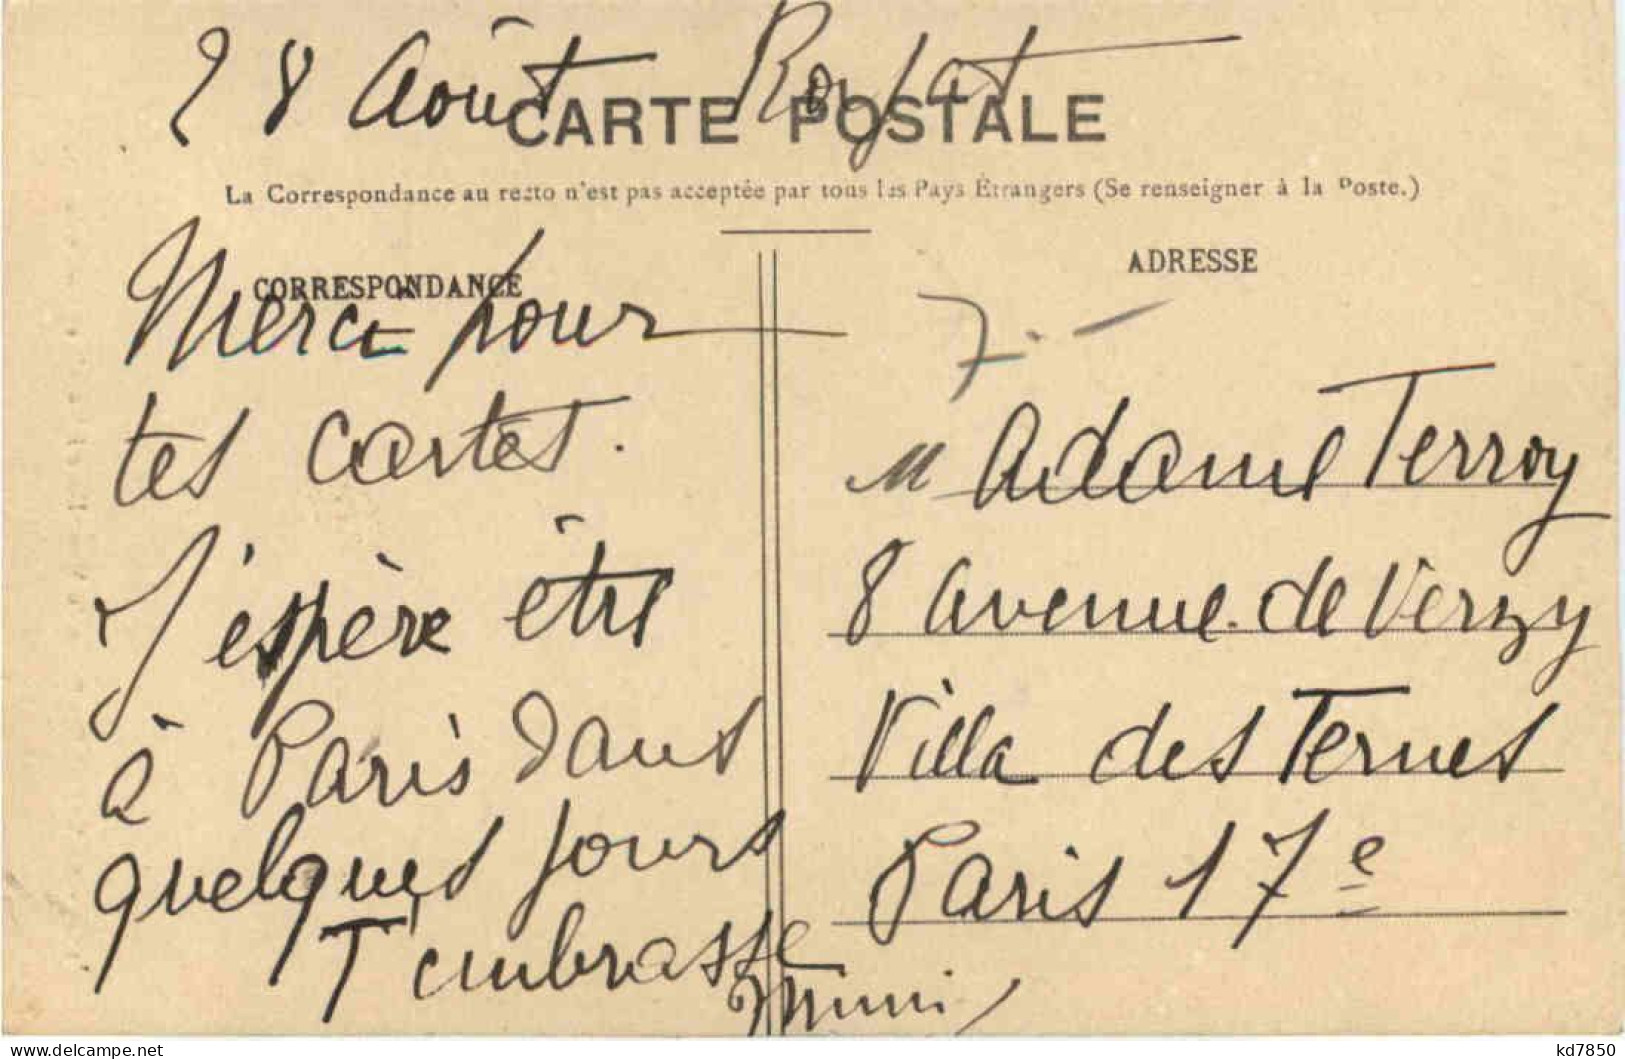 28 Août Royat
CARTE POSTALE
La Correspondance au recto n'est pas acceptée par tous les Pays Étrangers (Se renseigner à la Poste.)
CORRESPONDANCE
Merci pour
tes cartes.
J'espère être
à Paris dans
quelques jours
T'embrasse
Mimi
ADRESSE
7.-
Madame Terroy
8 avenue de Verzy
Villa des Ternes
Paris 17e
kd7850